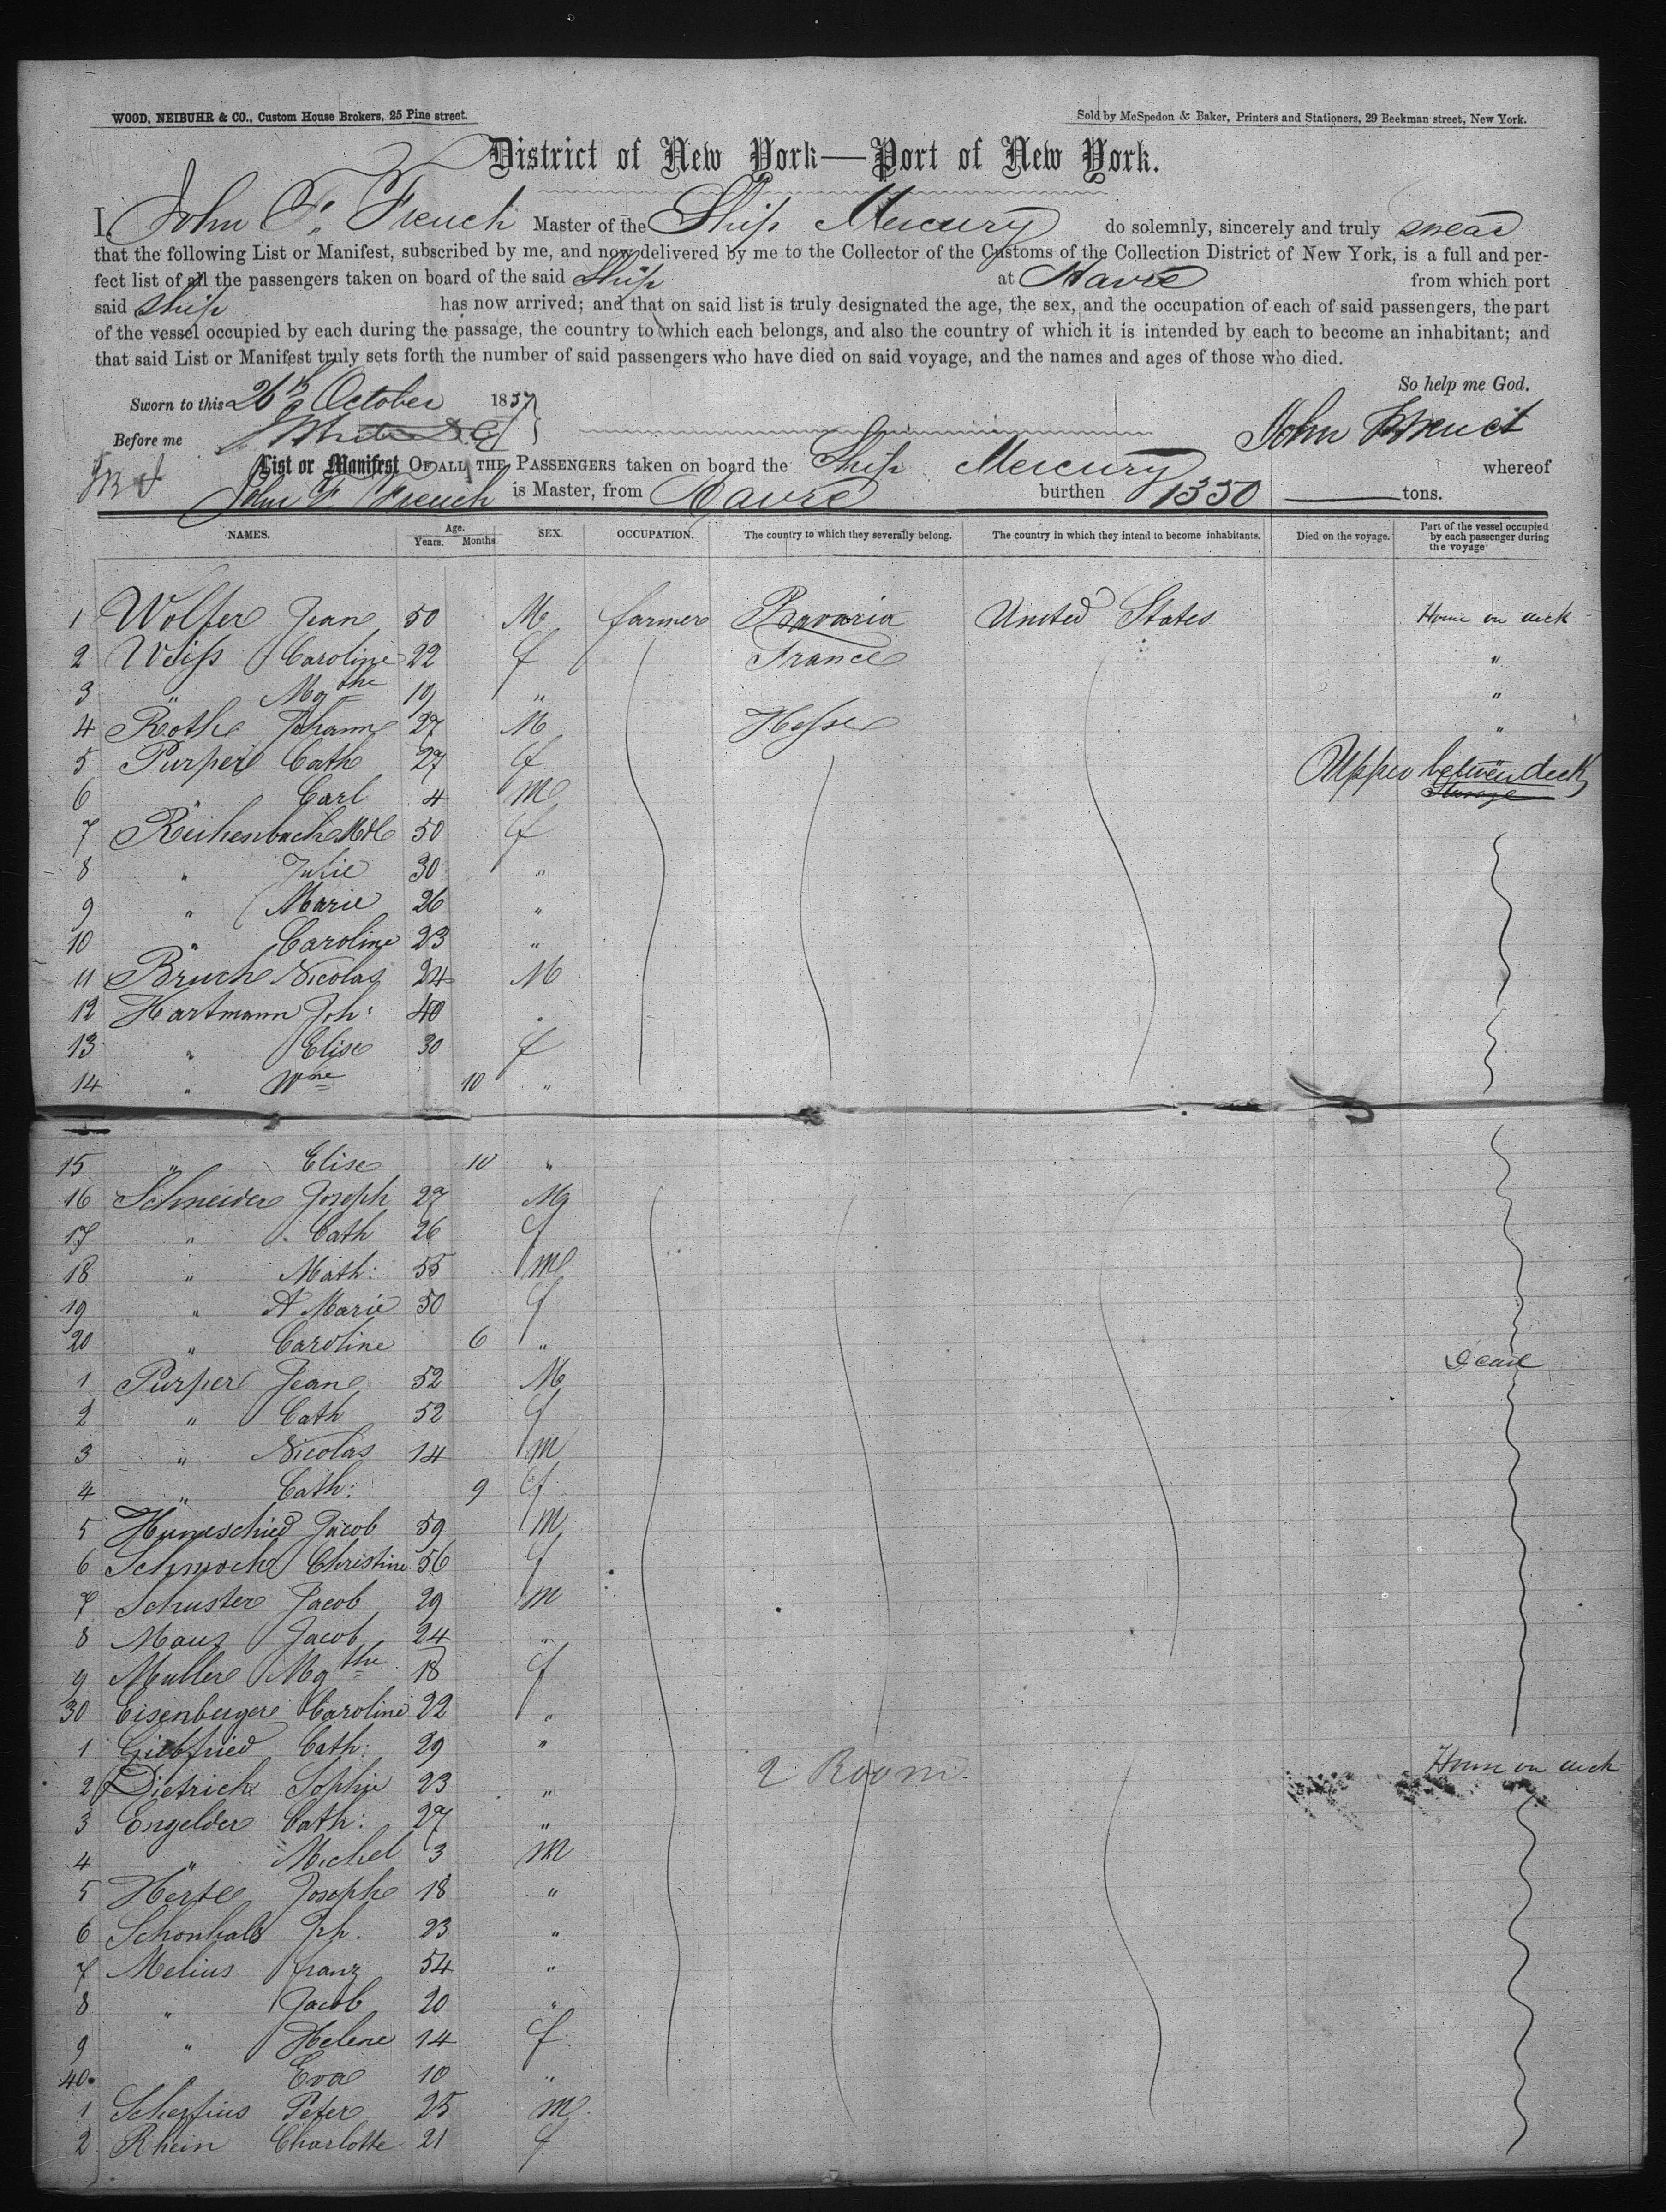 WOOD, NEIBUHR & CO., Custom House Brokers, 25 Pine street.
Sold by McSpedon & Baker, Printers and Stationers, 29 Beekman street, New York.
District of New York—Port of New York.
I, John F. French Master of the Ship Mercury do solemnly, sincerely and truly swear
that the following List or Manifest, subscribed by me, and now delivered by me to the Collector of the Customs of the Collection District of New York, is a full and per-
fect list of all the passengers taken on board of the said Ship at Havre from which port
said Ship has now arrived; and that on said list is truly designated the age, the sex, and the occupation of each of said passengers, the part
of the vessel occupied by each during the passage, the country to which each belongs, and also the country of which it is intended by each to become an inhabitant; and
that said List or Manifest truly sets forth the number of said passengers who have died on said voyage, and the names and ages of those who died.
So help me God.
Sworn to this 26th October 1857
John F French
Before me
List or Manifest OF ALL THE PASSENGERS taken on board the Ship Mercury whereof
John F. French is Master, from Havre burthen 1350 tons.
NAMES. Age. Years. Months. SEX. OCCUPATION. The country to which they severally belong. The country in which they intend to become inhabitants. Died on the voyage. Part of the vessel occupied by each passenger during the voyage
1 Wolfer Jean 50 M farmer Bavaria United States House on deck
2 Weiss Caroline 22 f France "
3 " Mgthe 19 " "
4 Roth Johann 27 M Hesse "
5 Purper Cath 27 f Upper between deck
6 " Carl 4 M Steerage
7 Reihenbach 50 f
8 " Julie 30 "
9 " Marie 26 "
10 " Caroline 23 "
11 Bruch Nicolas 24 M
12 Hartmann Joh: 40 "
13 " Elise 30 f
14 " Wne 10 "
15 " Elise 10 "
16 Schneider Joseph 27 M
17 " Cath 26 f
18 " Math: 55 M
19 " A Marie 50 f
20 " Caroline 6 " Dead
1 Purper Jean 52 M
2 " Cath 52 f
3 " Nicolas 14 m
4 " Cath: 9 f
5 Hunschied Jacob 59 m
6 Schmock Christine 56 f
7 Schuster Jacob 29 m
8 Maus Jacob 24 "
9 Muller Mgthe 18 f
30 Eisenberger Caroline 22 "
1 Cath: 29 "
2 Dietrich Sophie 23 " 2 Room House on deck
3 Engelder Cath: 27 "
4 " Michel 3 M
5 Herte Joseph 18 "
6 Schonhals Joh. 23 "
7 Melius franz 54 "
8 " Jacob 20 "
9 " Helene 14 f
40 " Eva 10 "
1 Scherfius Peter 25 m
2 Rhein Charlotte 21 f